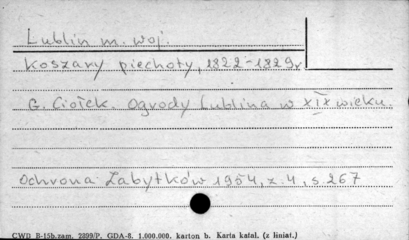 Lublin m. woj.
Koszary piechoty, 1822-1829r
G. Ciołek. Ogrody Lublina w XIX wieku.
Ochrona Zabytków 1954, z. 4, s 267
CWD B-15b.zam. 2899/P. GDA-8. 1.000.000. karton b. Karta katal. (z liniat.)